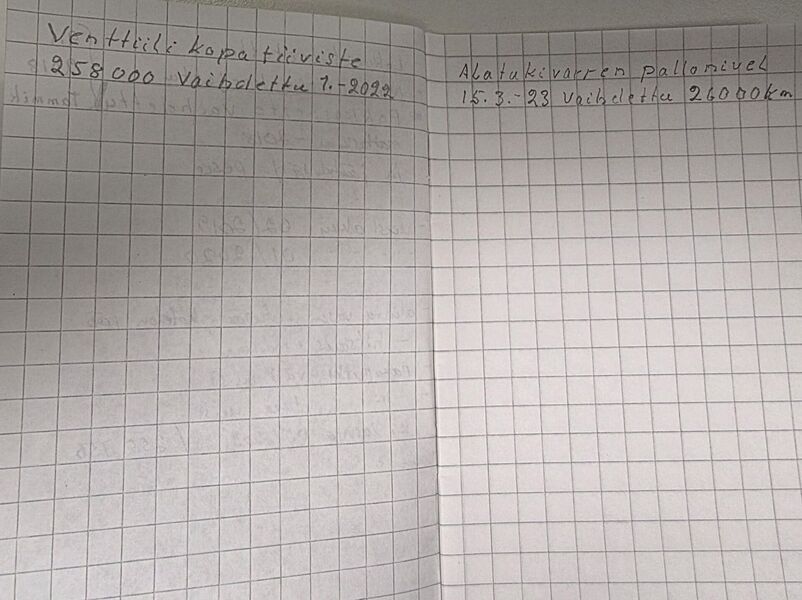 Venttiili kopa tiiviste
258 000 Vaihdettu 1.-2022
Alatukivarren pallonivel
15.3.-23 Vaihdettu 26000km